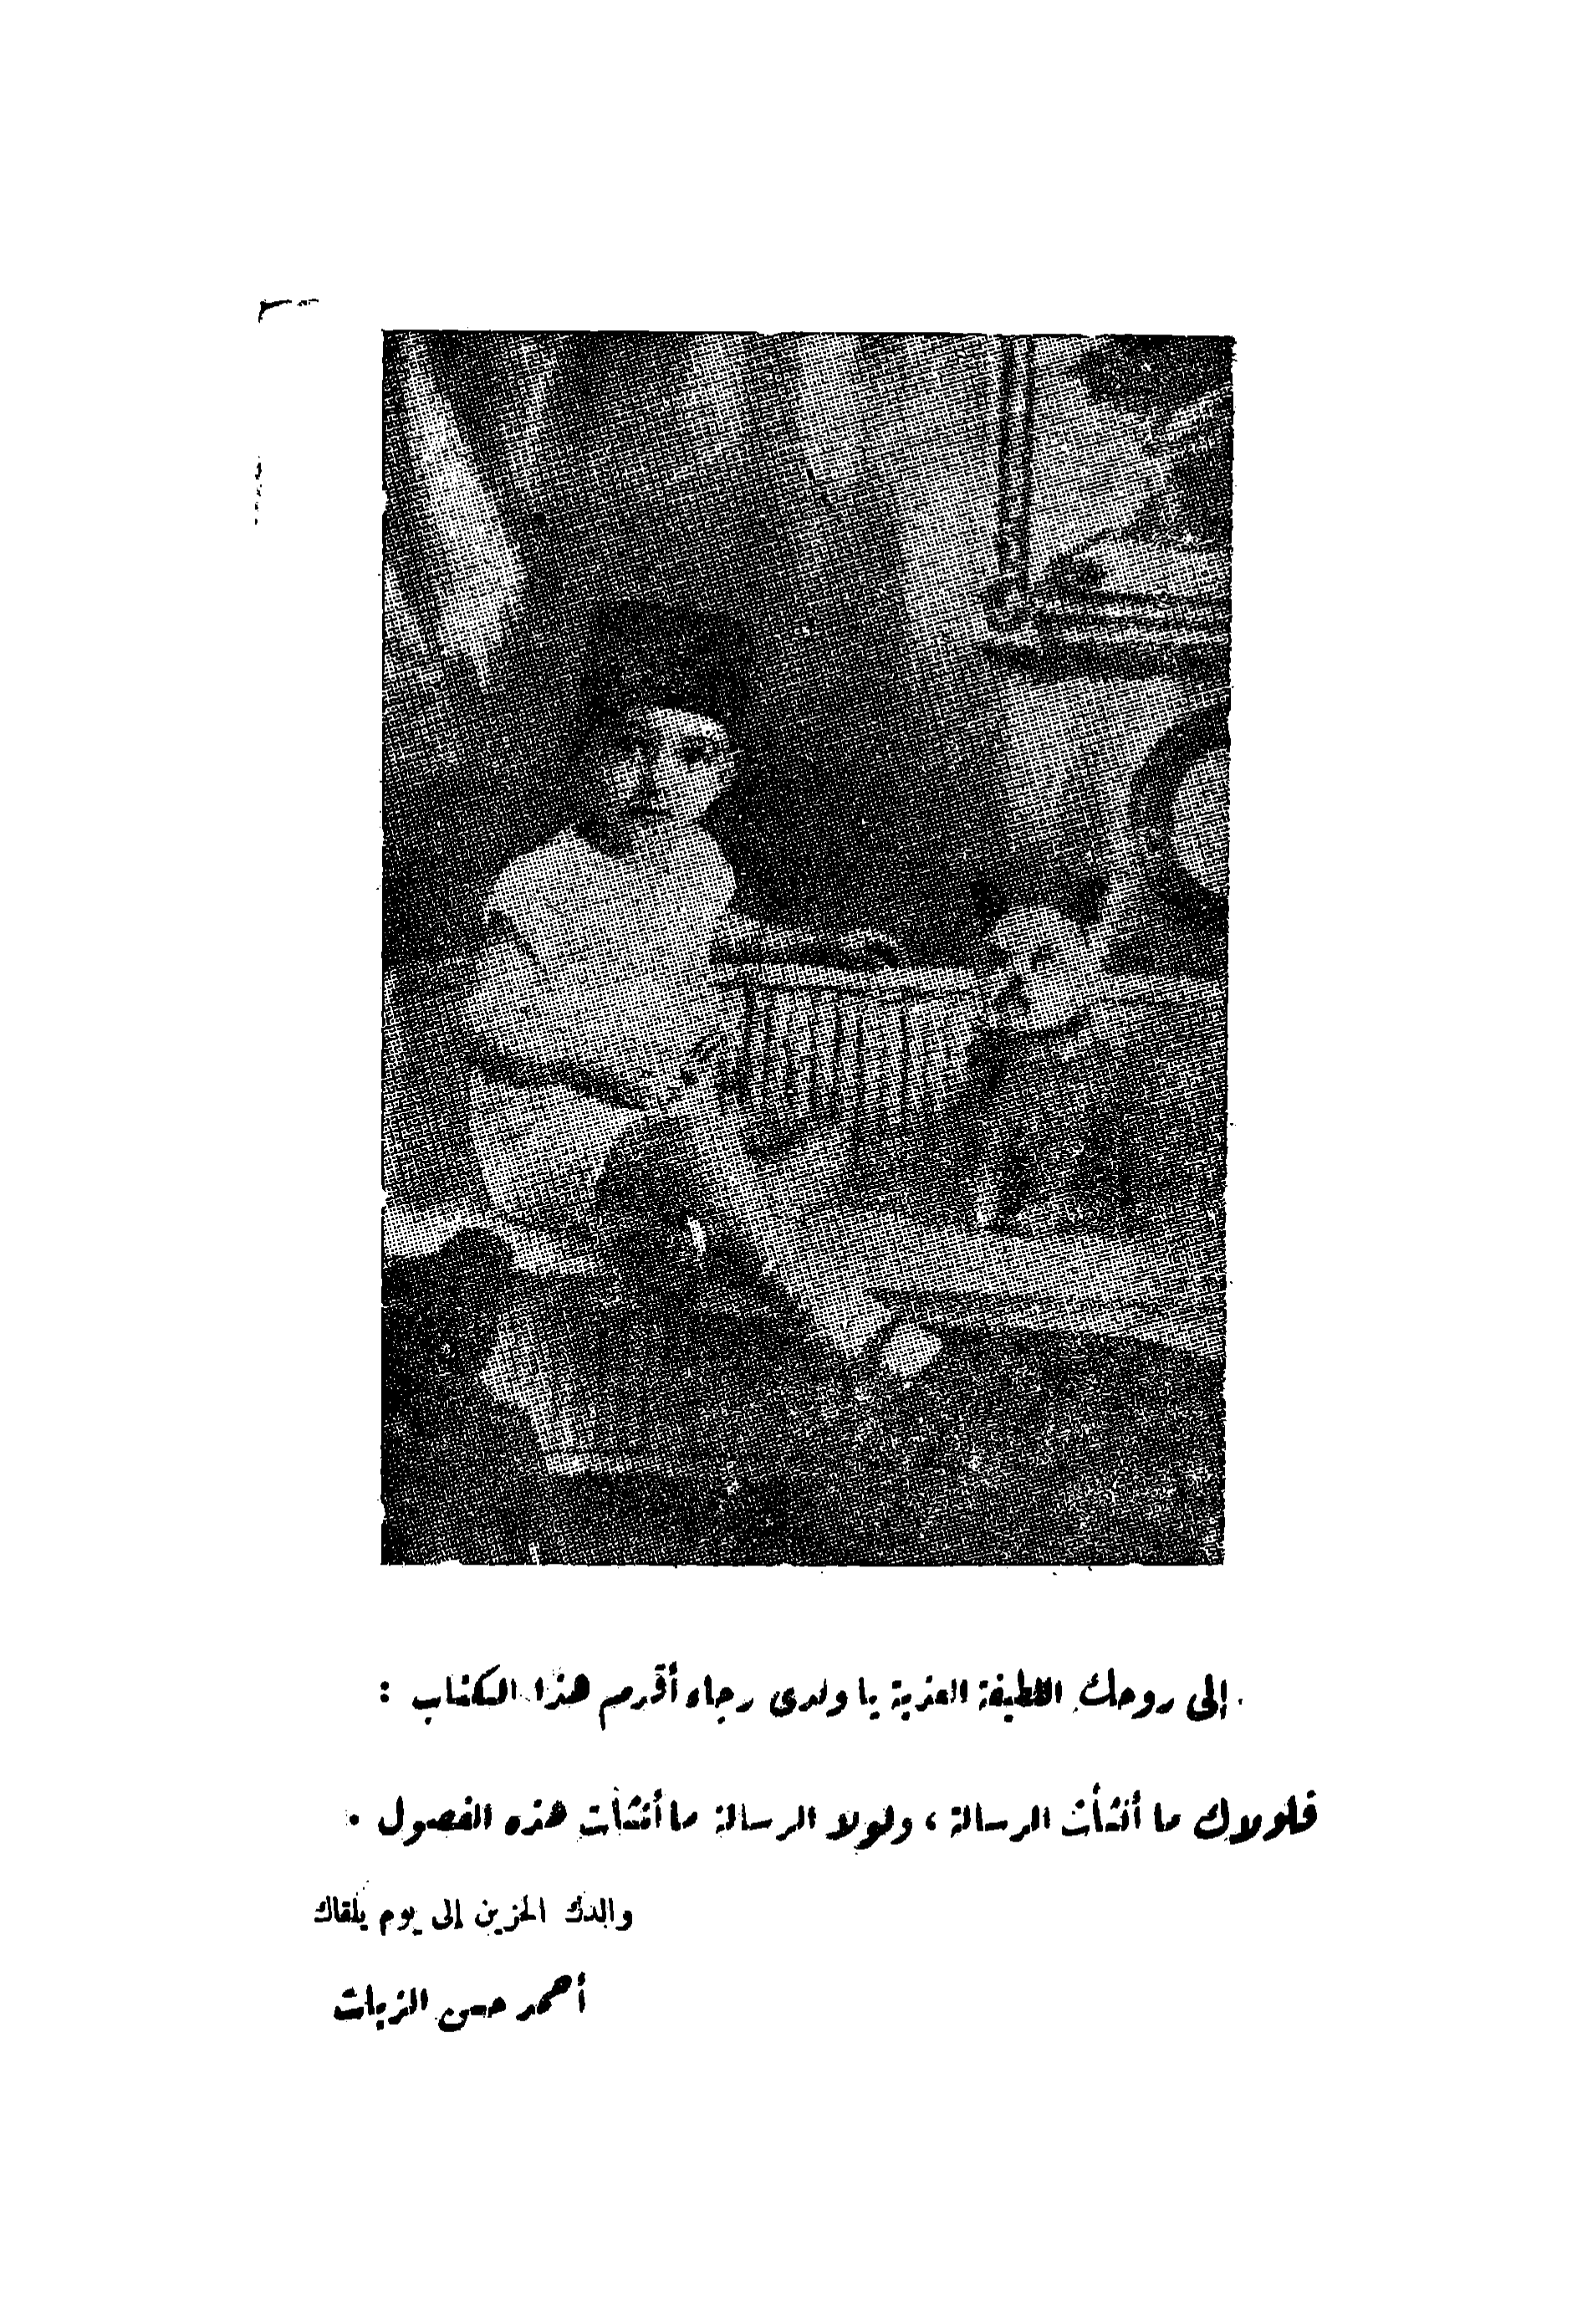 إلى روحك اللطيفة العذبة يا ولدى رجاء أقدم هذا الكتاب :
فلولاك ما أنشأت الرسالة ، ولولا الرسالة ما أنشأت هذه الفصول .
والدك الحزين إلى يوم يلقاك
أحمد حسن الزيات